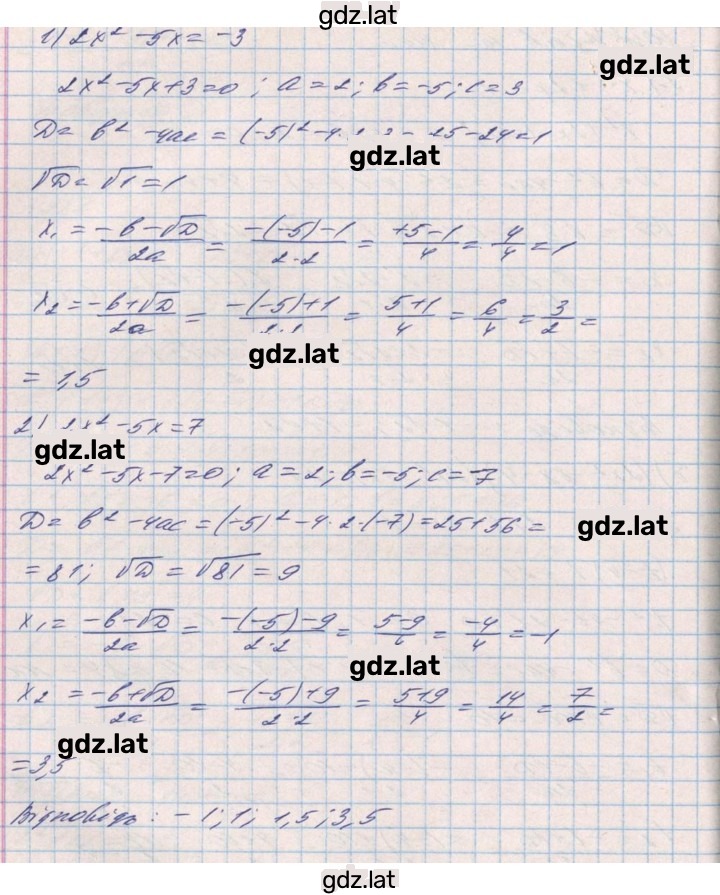 gdz.lat
1) 2x² - 5x = -3
gdz.lat
2x² - 5x + 3 = 0 ; a = 2 ; b = -5 ; c = 3
D = b² - 4ac = (-5)² - 4 · 25 - 24 = 1
gdz.lat
√D = √1 = 1
x₁ = (-b - √D)/(2a) = (-(-5) - 1)/(2·2) = (+5 - 1)/4 = 4/4 = 1
x₂ = (-b + √D)/(2a) = (-(-5) + 1)/(2·2) = (5 + 1)/4 = 6/4 = 3/2 =
gdz.lat
= 1,5
2) 2x² - 5x = 7
gdz.lat
2x² - 5x - 7 = 0 ; a = 2 ; b = -5 ; c = -7
D = b² - 4ac = (-5)² - 4 · 2 · (-7) = 25 + 56 =
gdz.lat
= 81 ; √D = √81 = 9
x₁ = (-b - √D)/(2a) = (-(-5) - 9)/(2·2) = (5 - 9)/4 = -4/4 = -1
gdz.lat
x₂ = (-b + √D)/(2a) = (-(-5) + 9)/(2·2) = (5 + 9)/4 = 14/4 = 7/2 =
gdz.lat
= 3,5
Відповідь : - 1 ; 1 ; 1,5 ; 3,5
gdz.lat